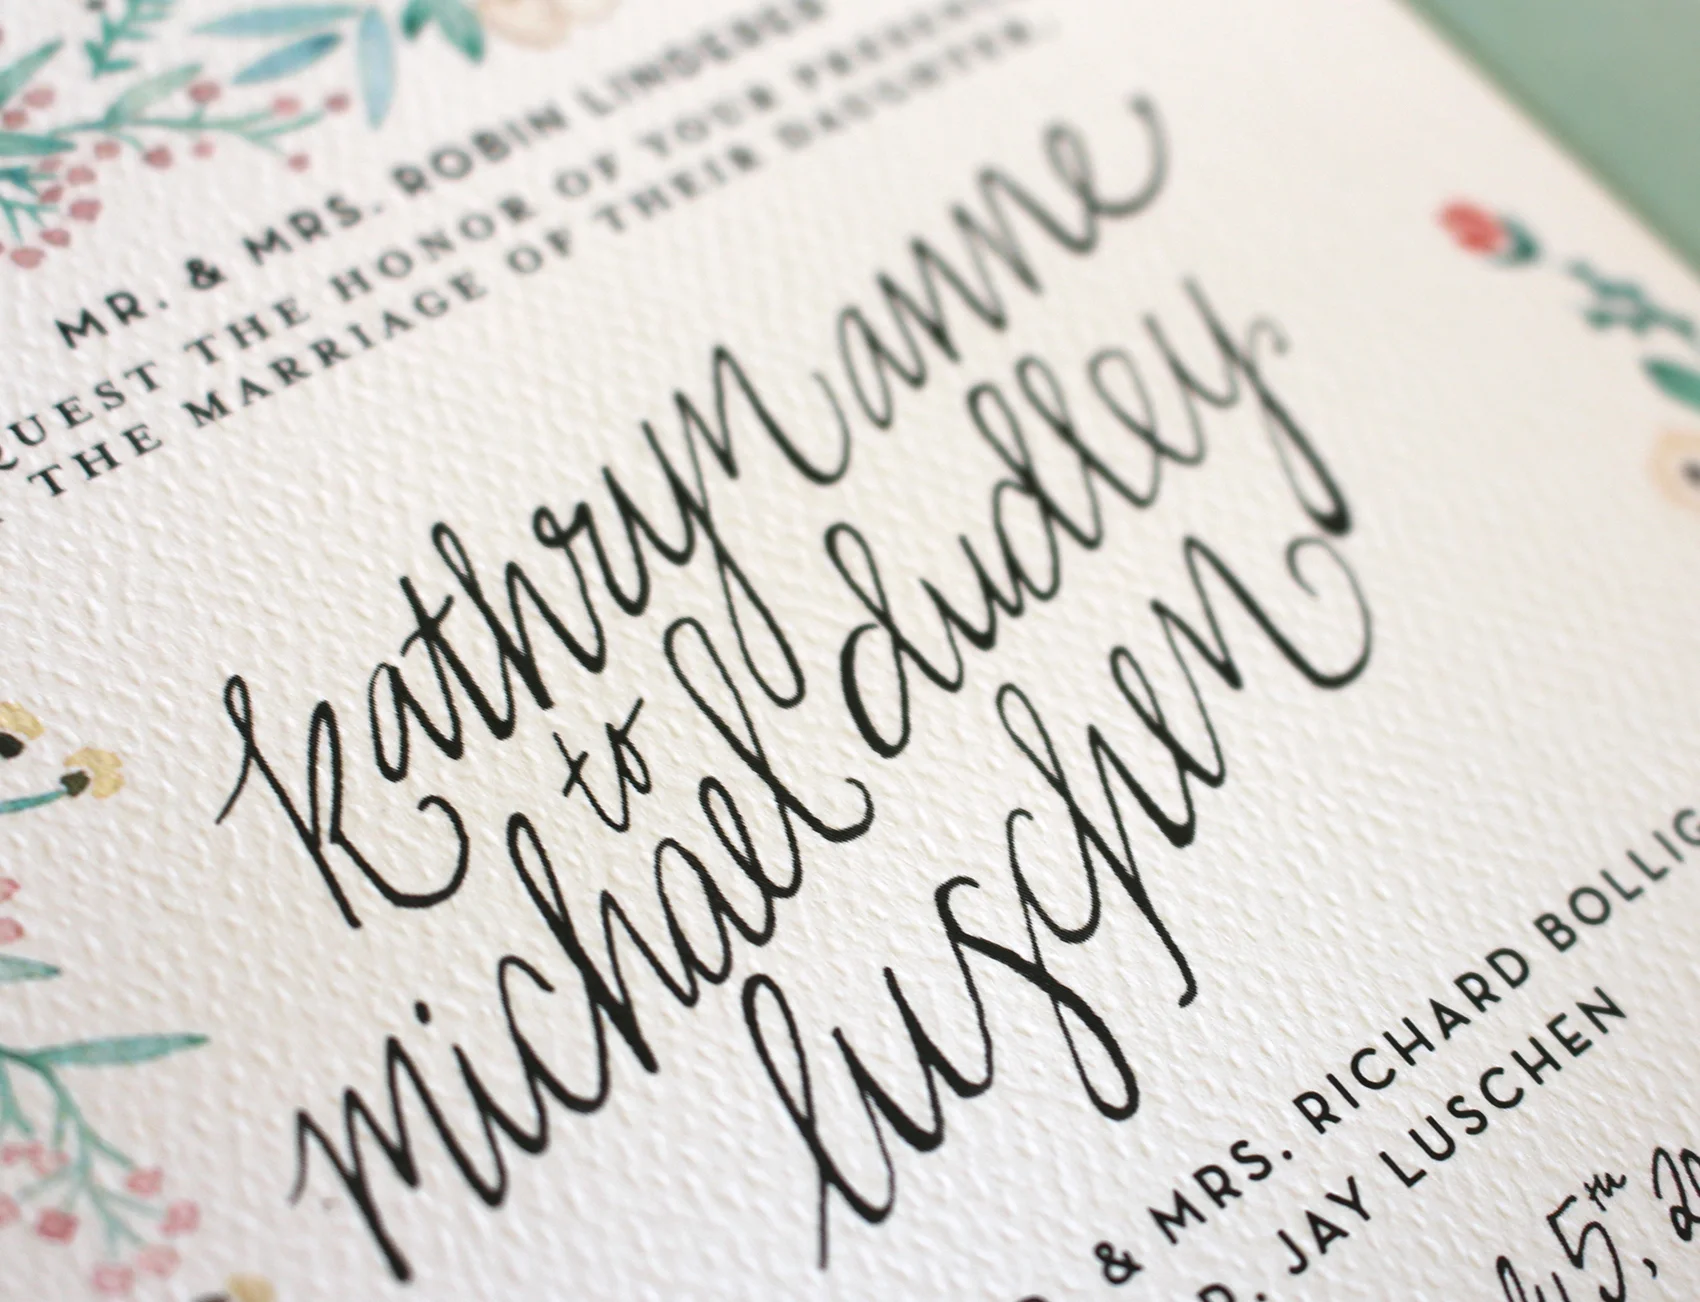 MR. & MRS. ROBIN
QUEST THE HONOR OF YOUR PRESENCE
THE MARRIAGE OF THEIR DAUGHTER,
kathryn anne
to
michael dudley
luschen
& MRS. RICHARD
JAY LUSCHEN
5th,